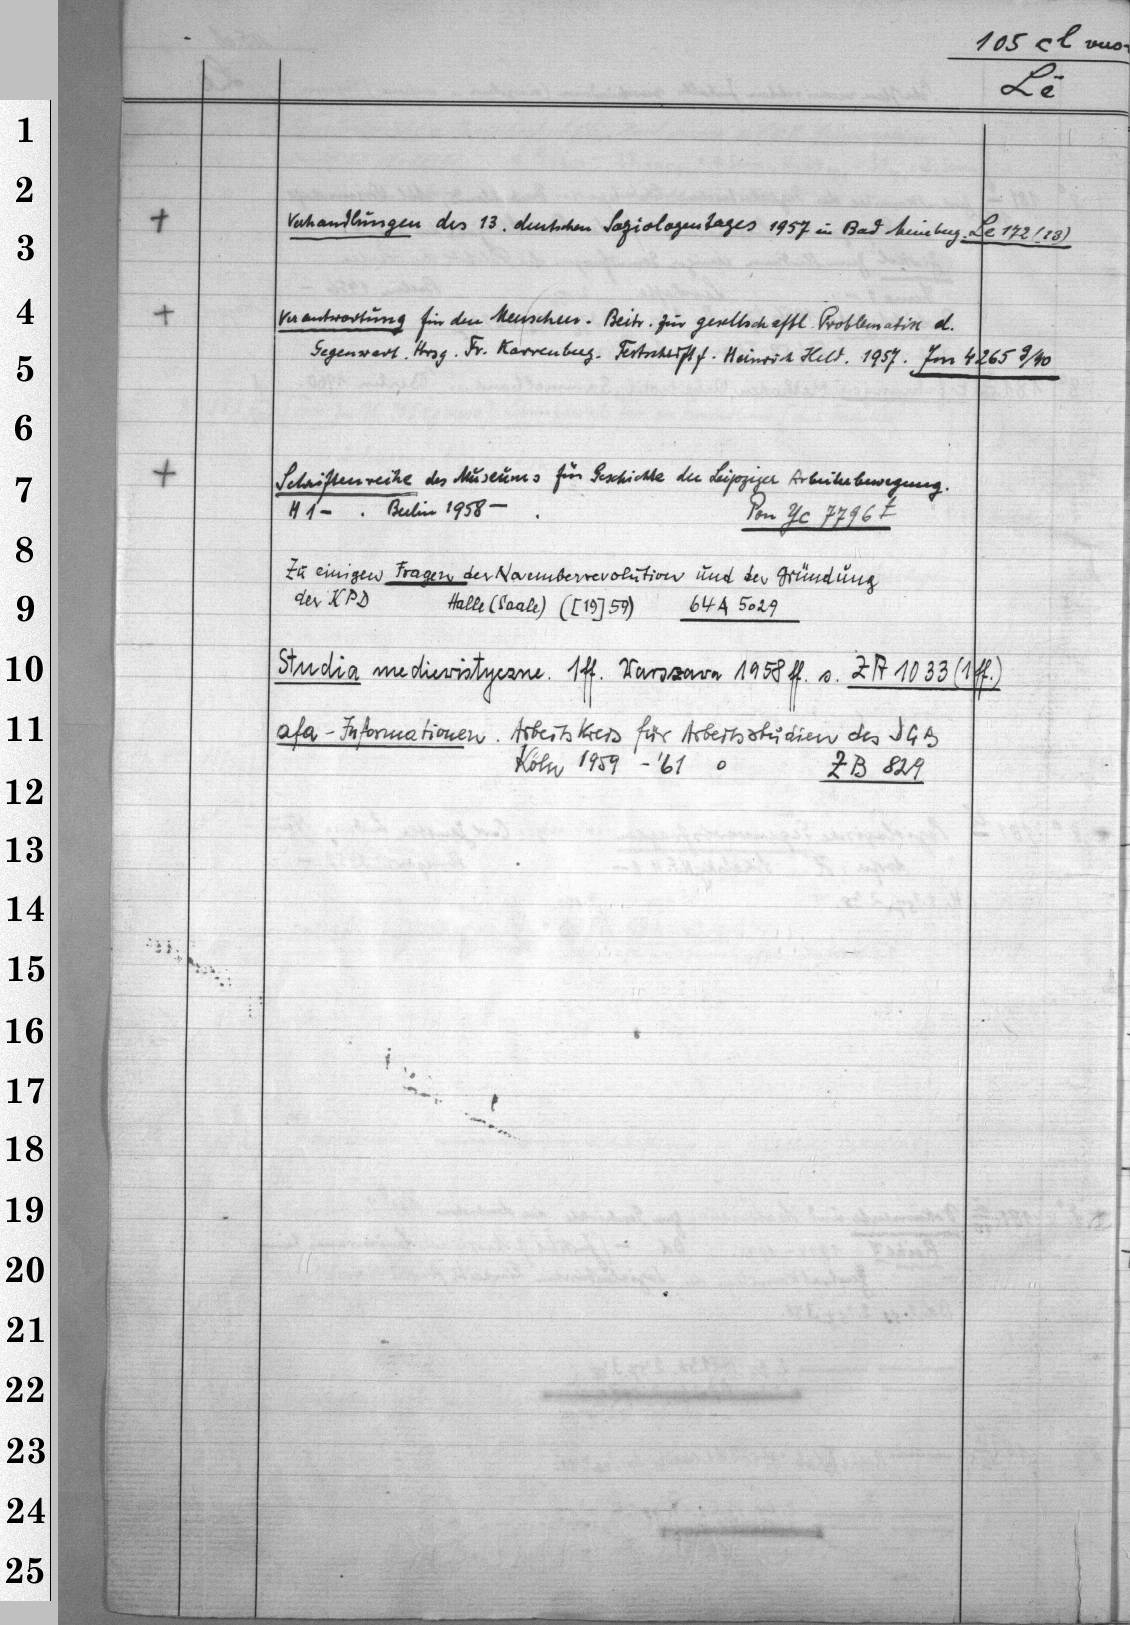 105 cl
Le
1
2
+ Verhandlungen des 13. deutschen Soziologentages 1957 in Bad Meinberg. Le 172 (13)
3
4
+ Verantwortung für den Menschen. Beitr. zur gesellschaftl. Problematik d.
Gegenwart. Hrsg. Fr. Karrenberg. Festschrift f. Heinrich Held. 1957. 4265
5
6
+ Schriftenreihe des Museums für Geschichte der Leipziger Arbeiterbewegung.
7
H 1 - . Berlin 1958 - . Yc 7796
8
Zu einigen Fragen der Novemberrevolution und der Gründung
9
der KPD Halle (Saale) ([19]59) 64 A 5029
10
Studia mediewistyczne. 1ff. Warszawa 1958 ff. s. ZA 1033 (1ff.)
11
afa - Informationen. Arbeitskreis für Arbeitsstudien des DGB
Köln 1959 - '61 ZB 829
12
13
14
15
16
17
18
19
20
21
22
23
24
25